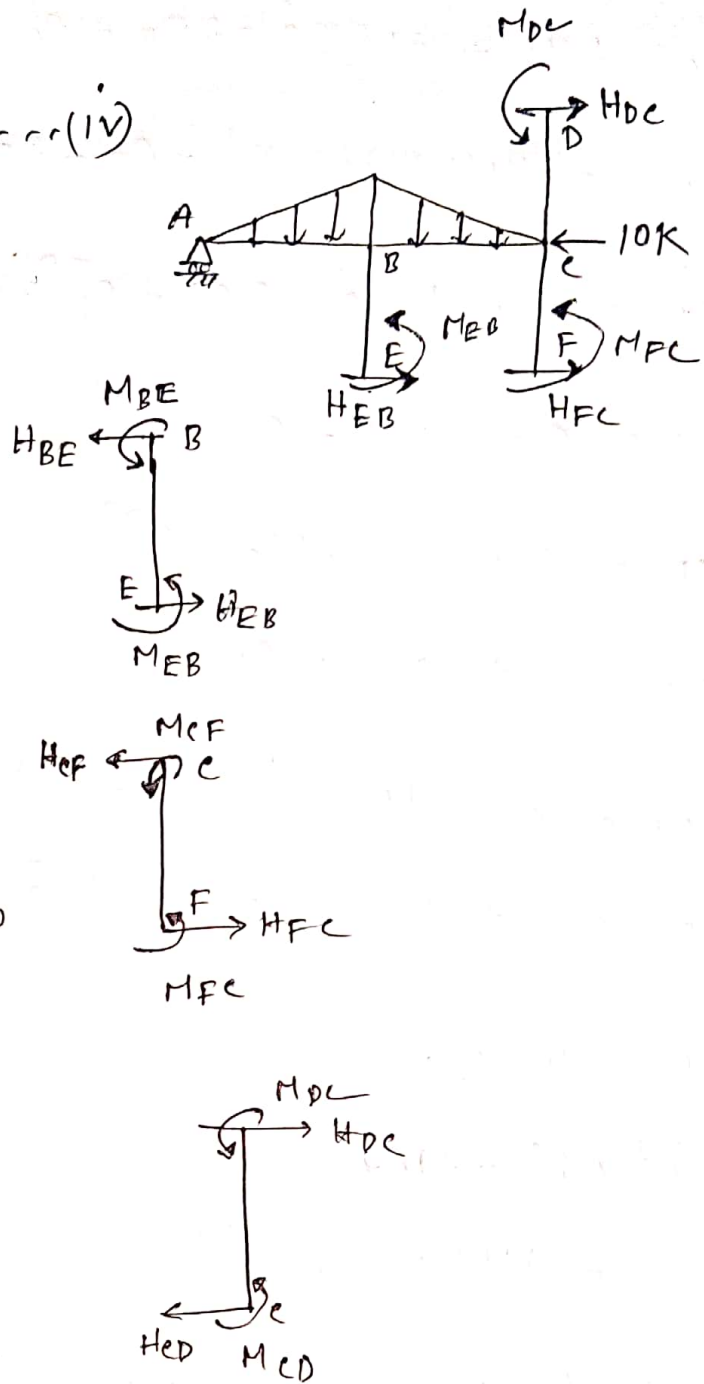 M_DC
---(iv)
H_DC
D
A
B
C
10K
E
M_EB
F
M_FC
H_EB
H_FC
M_BE
H_BE
B
E
H_EB
M_EB
M_CF
H_CF
C
F
H_FC
M_FC
M_DC
H_DC
C
H_CD
M_CD